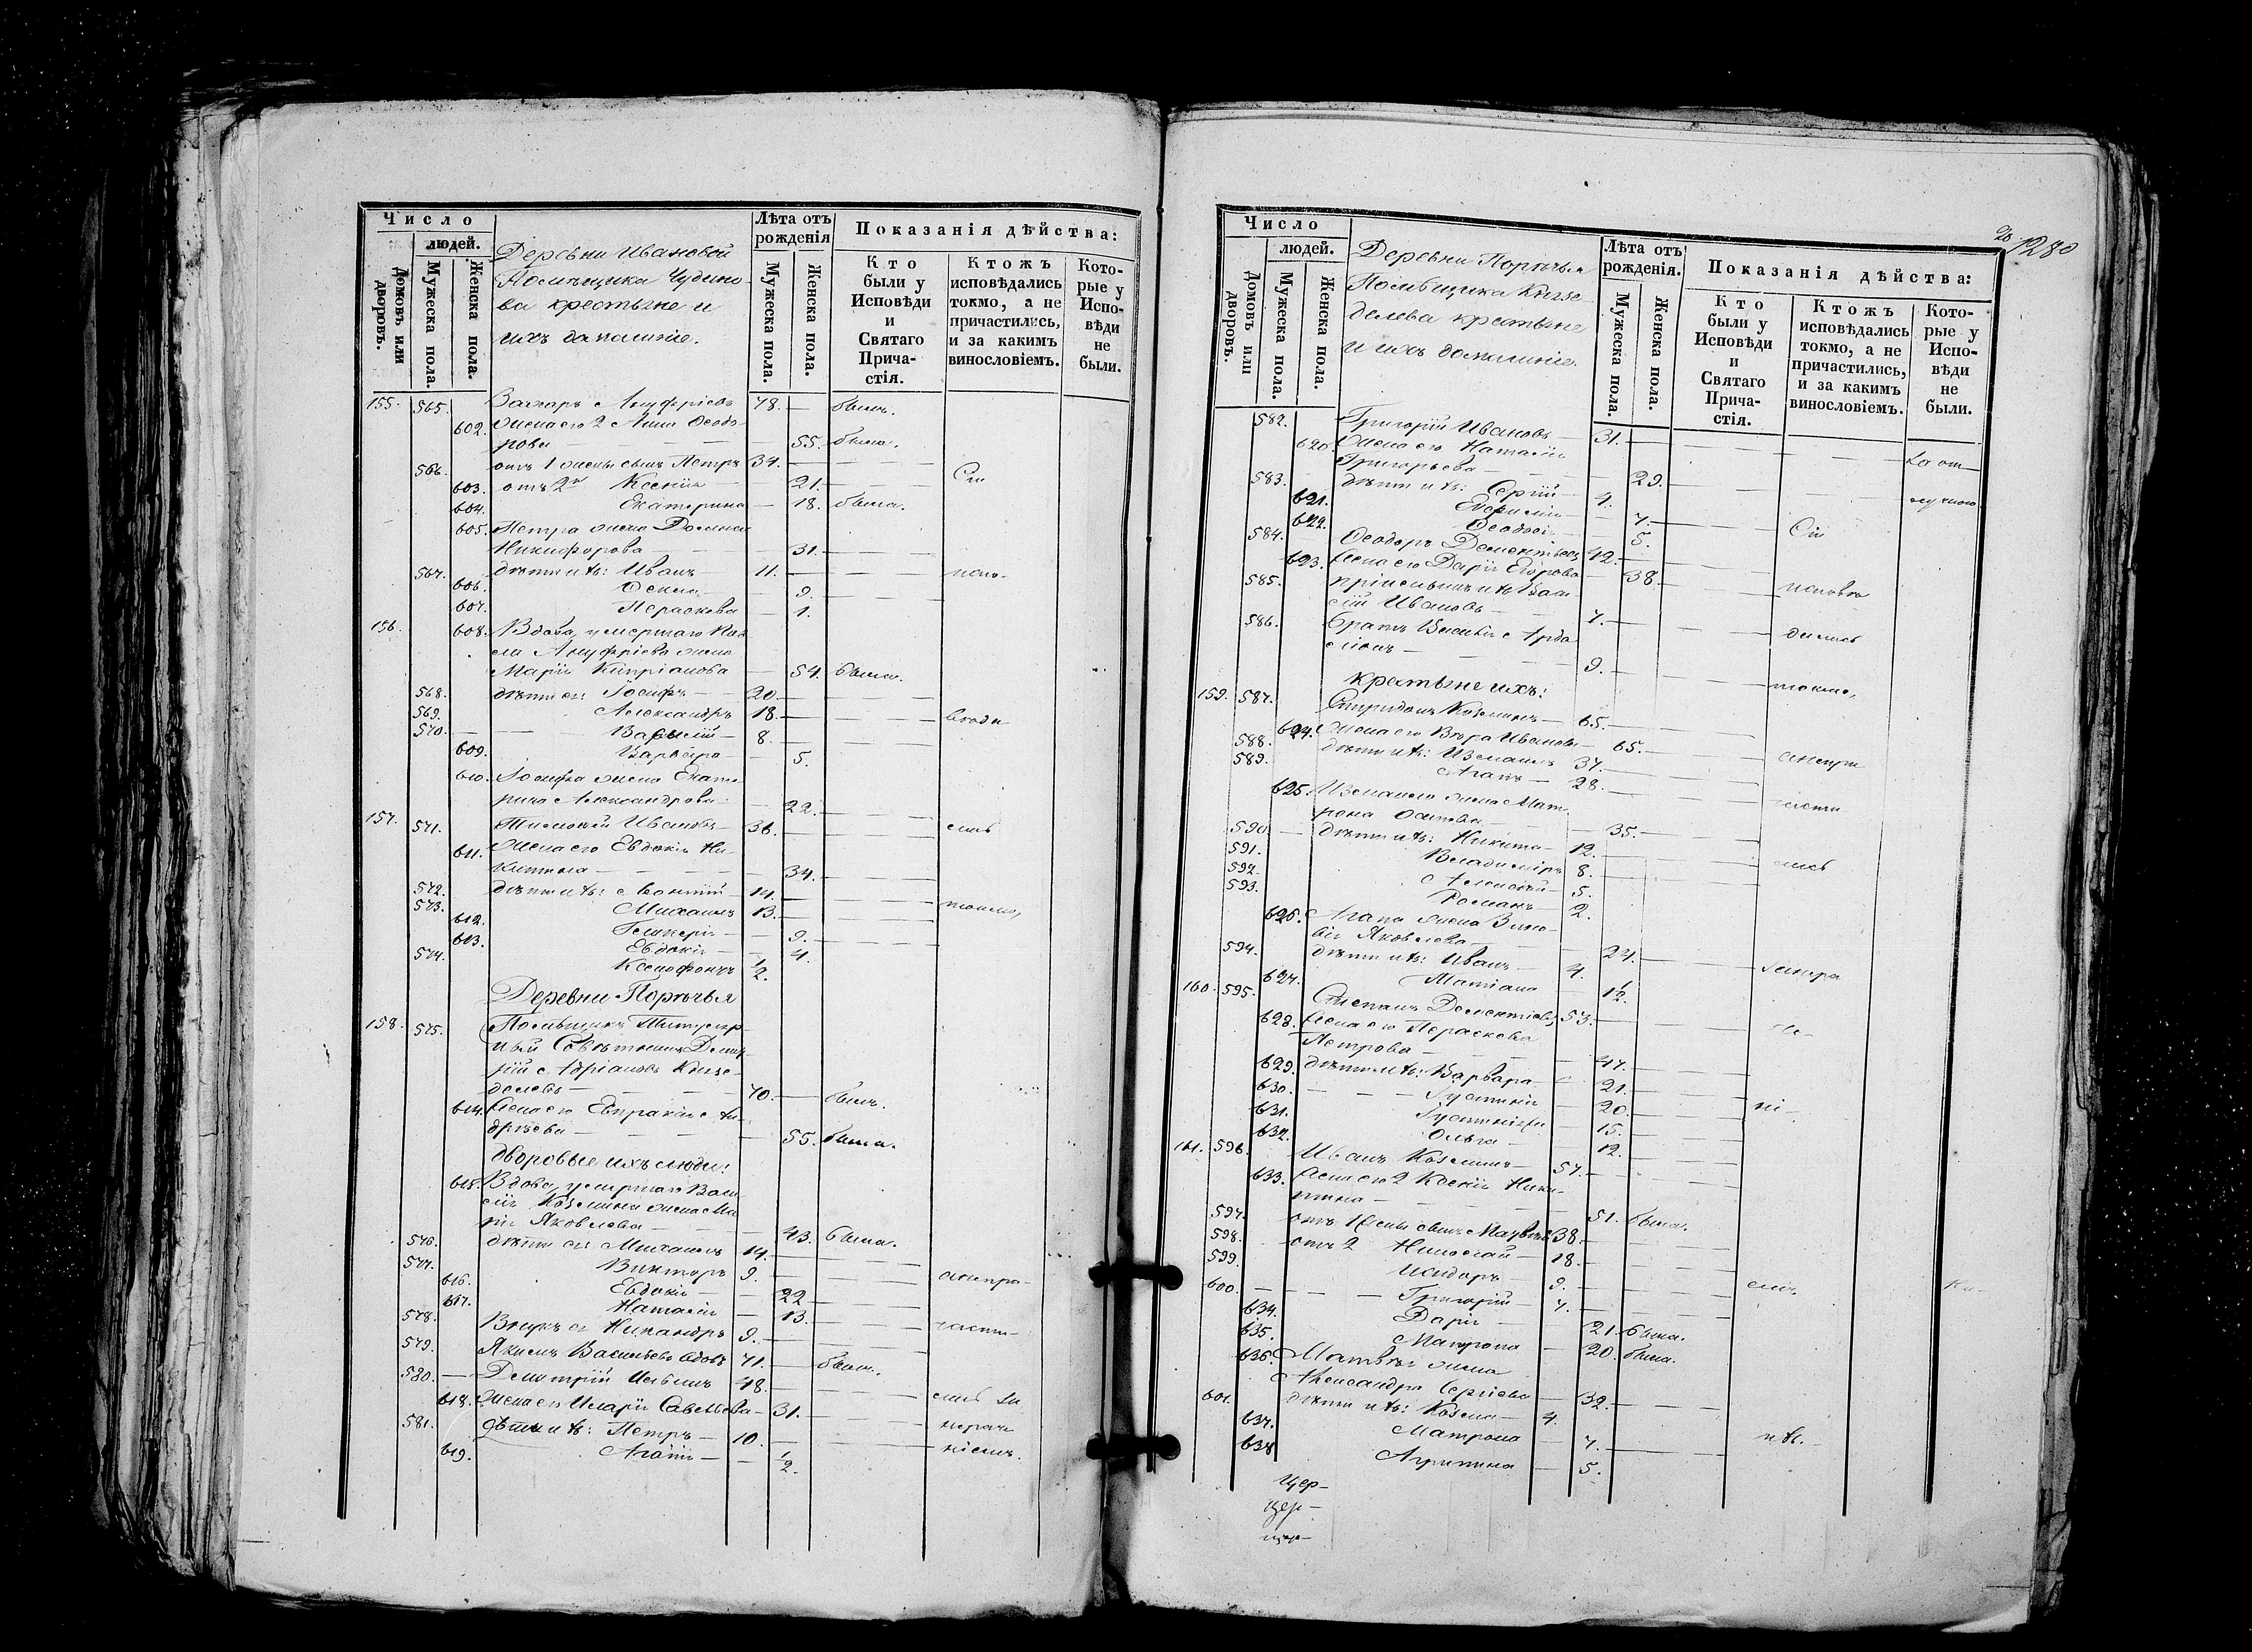 Число
людей.
Домовъ или дворовъ.
Мужеска пола.
Женска пола.
Деревни Ивановой
Помѣщика Чудино-
ва крестьяне и
ихъ домашніе.
Лѣта отъ рожденія
Мужеска пола.
Женска пола.
Показанія дѣйства:
Кто были у Исповѣди и Святаго Прича-стія.
Ктожъ исповѣдались токмо, а не причастились, и за какимъ винословіемъ.
Кото-рые у Испо-вѣди не были.
155. 565. Захаръ Ануфріевъ 78. — былъ.
602. Жена его 2 Анна Ѳеодо-
рова — 55. была.
566. отъ 1 жены сынъ Петръ 34. —
603. отъ 2й Ксенія — 21. —
604. Екатерина — 18. была.
605. Петра жена
Никифорова — 31. —
567. дѣти ихъ: Иванъ 11. —
606. — 9.
607. Параскева — 1.
156. 608. Вдова, умершаго Пав-
ла Ануфріева жена
Марія Кипріанова — 54. была.
568. дѣти ея: Іосифъ — 20 —
569. Александръ 18. —
570. — Василій — 8. —
609. Варвара — 5.
610. Іосифа жена Екате-
рина Александрова — 22. —
157. 571. Тимоѳей Ивановъ — 36. —
611. Жена его Евдокія Ни-
китина — 34. —
572. дѣти ихъ: Леонтій — 14. —
573. Михаилъ 13. — токмо,
612. Гликерія — 9. —
613. Евдокія — 4.
574. Ксенофонтъ 1/2.
Деревни Порѣчья
158. 575. Помѣщикъ Титуляр-
ный Совѣтникъ Дмит-
рій Адріановъ Князе-
делевъ — 70. — былъ.
614. Жена его Евпраксія Ан-
дреева — 55. была.
дворовые ихъ люди:
615. Вдова, умершаго Васи-
лія Козмина жена Ма-
рія Яковлева — 43. была.
576. дѣти ея Михаилъ 14. —
577. Викторъ 9. —
616. Евдокія — 22 —
617. Наталія — 13. —
578. Внукъ ея Никандръ 9. —
579. Якимъ Васильевъ вдовъ 71. — былъ.
580. — Димитрій Ильинъ 48. —
618. Жена его Иларія Савельева — 31. —
581. дѣти ихъ: Петръ — 10. —
619. Агафія — 1/2.
1280
Число
людей.
Домовъ или дворовъ.
Мужеска пола.
Женска пола.
Деревни Порѣчья
Помѣщика Князе-
делева крестьяне
и ихъ домашніе.
Лѣта отъ рожденія.
Мужеска пола.
Женска пола.
Показанія дѣйства:
Кто были у Исповѣди и Святаго Прича-стія.
Ктожъ исповѣдались токмо, а не причастились, и за какимъ винословіемъ.
Кото-рые у Испо-вѣди не были.
582. Григорій Ивановъ 31. —
620. Жена его Наталія
Григорьева — 29. —
583. дѣти ихъ: Сергій 4.
621. — 7. —
622. 5.
584. Ѳеодоръ Дементьевъ 42. —
623. Жена его Дарія Егорова — 38. —
585. пріемышъ ихъ Васи-
лій Ивановъ — 7. —
586. братъ Василія Арда-
ліонъ — 9. — токмо,
крестьяне ихъ:
159. 587. Спиридонъ Козминъ — 65. —
624. Жена его Вѣра Иванова — 65. —
588. дѣти ихъ: Измаилъ 37. —
589. Агапъ — 28. —
625. Измаила жена Мат-
рона Осипова — 35. —
590. — дѣти ихъ: Никита — 12. —
591. Владиміръ 8. —
592. Алексѣй — 5.
593. Романъ — 2.
626. Агапа жена Зино-
вія Яковлева — 24. —
594. дѣти ихъ: Иванъ — 4.
627. Татіана 1/2.
160. 595. Степанъ Дементіевъ 53. —
628. Жена его Параскева
Петрова — 47. —
629. дѣти ихъ: Варвара — 21. —
630. — Іустинія — 20. —
631. Іустинія — 15. —
632. Ольга — 12. —
161. 596. Иванъ Козминъ — 57. —
633. Жена его 2 Ксенія Ники-
тина — 51. была.
597. отъ 1 жены сынъ Матвѣй 38. —
598. отъ 2 Николай — 18. —
599. Исидоръ — 9. —
600. — Григорій — 7. —
634. Дарія — 21. была.
635. Матрона — 20. была.
636. Матвѣя жена
Александра Сергіева — 32. —
601. дѣти ихъ: Козма — 4.
637. Матрона — 7. —
638 Агрипина — 5.
Цер-
цер-
цер-